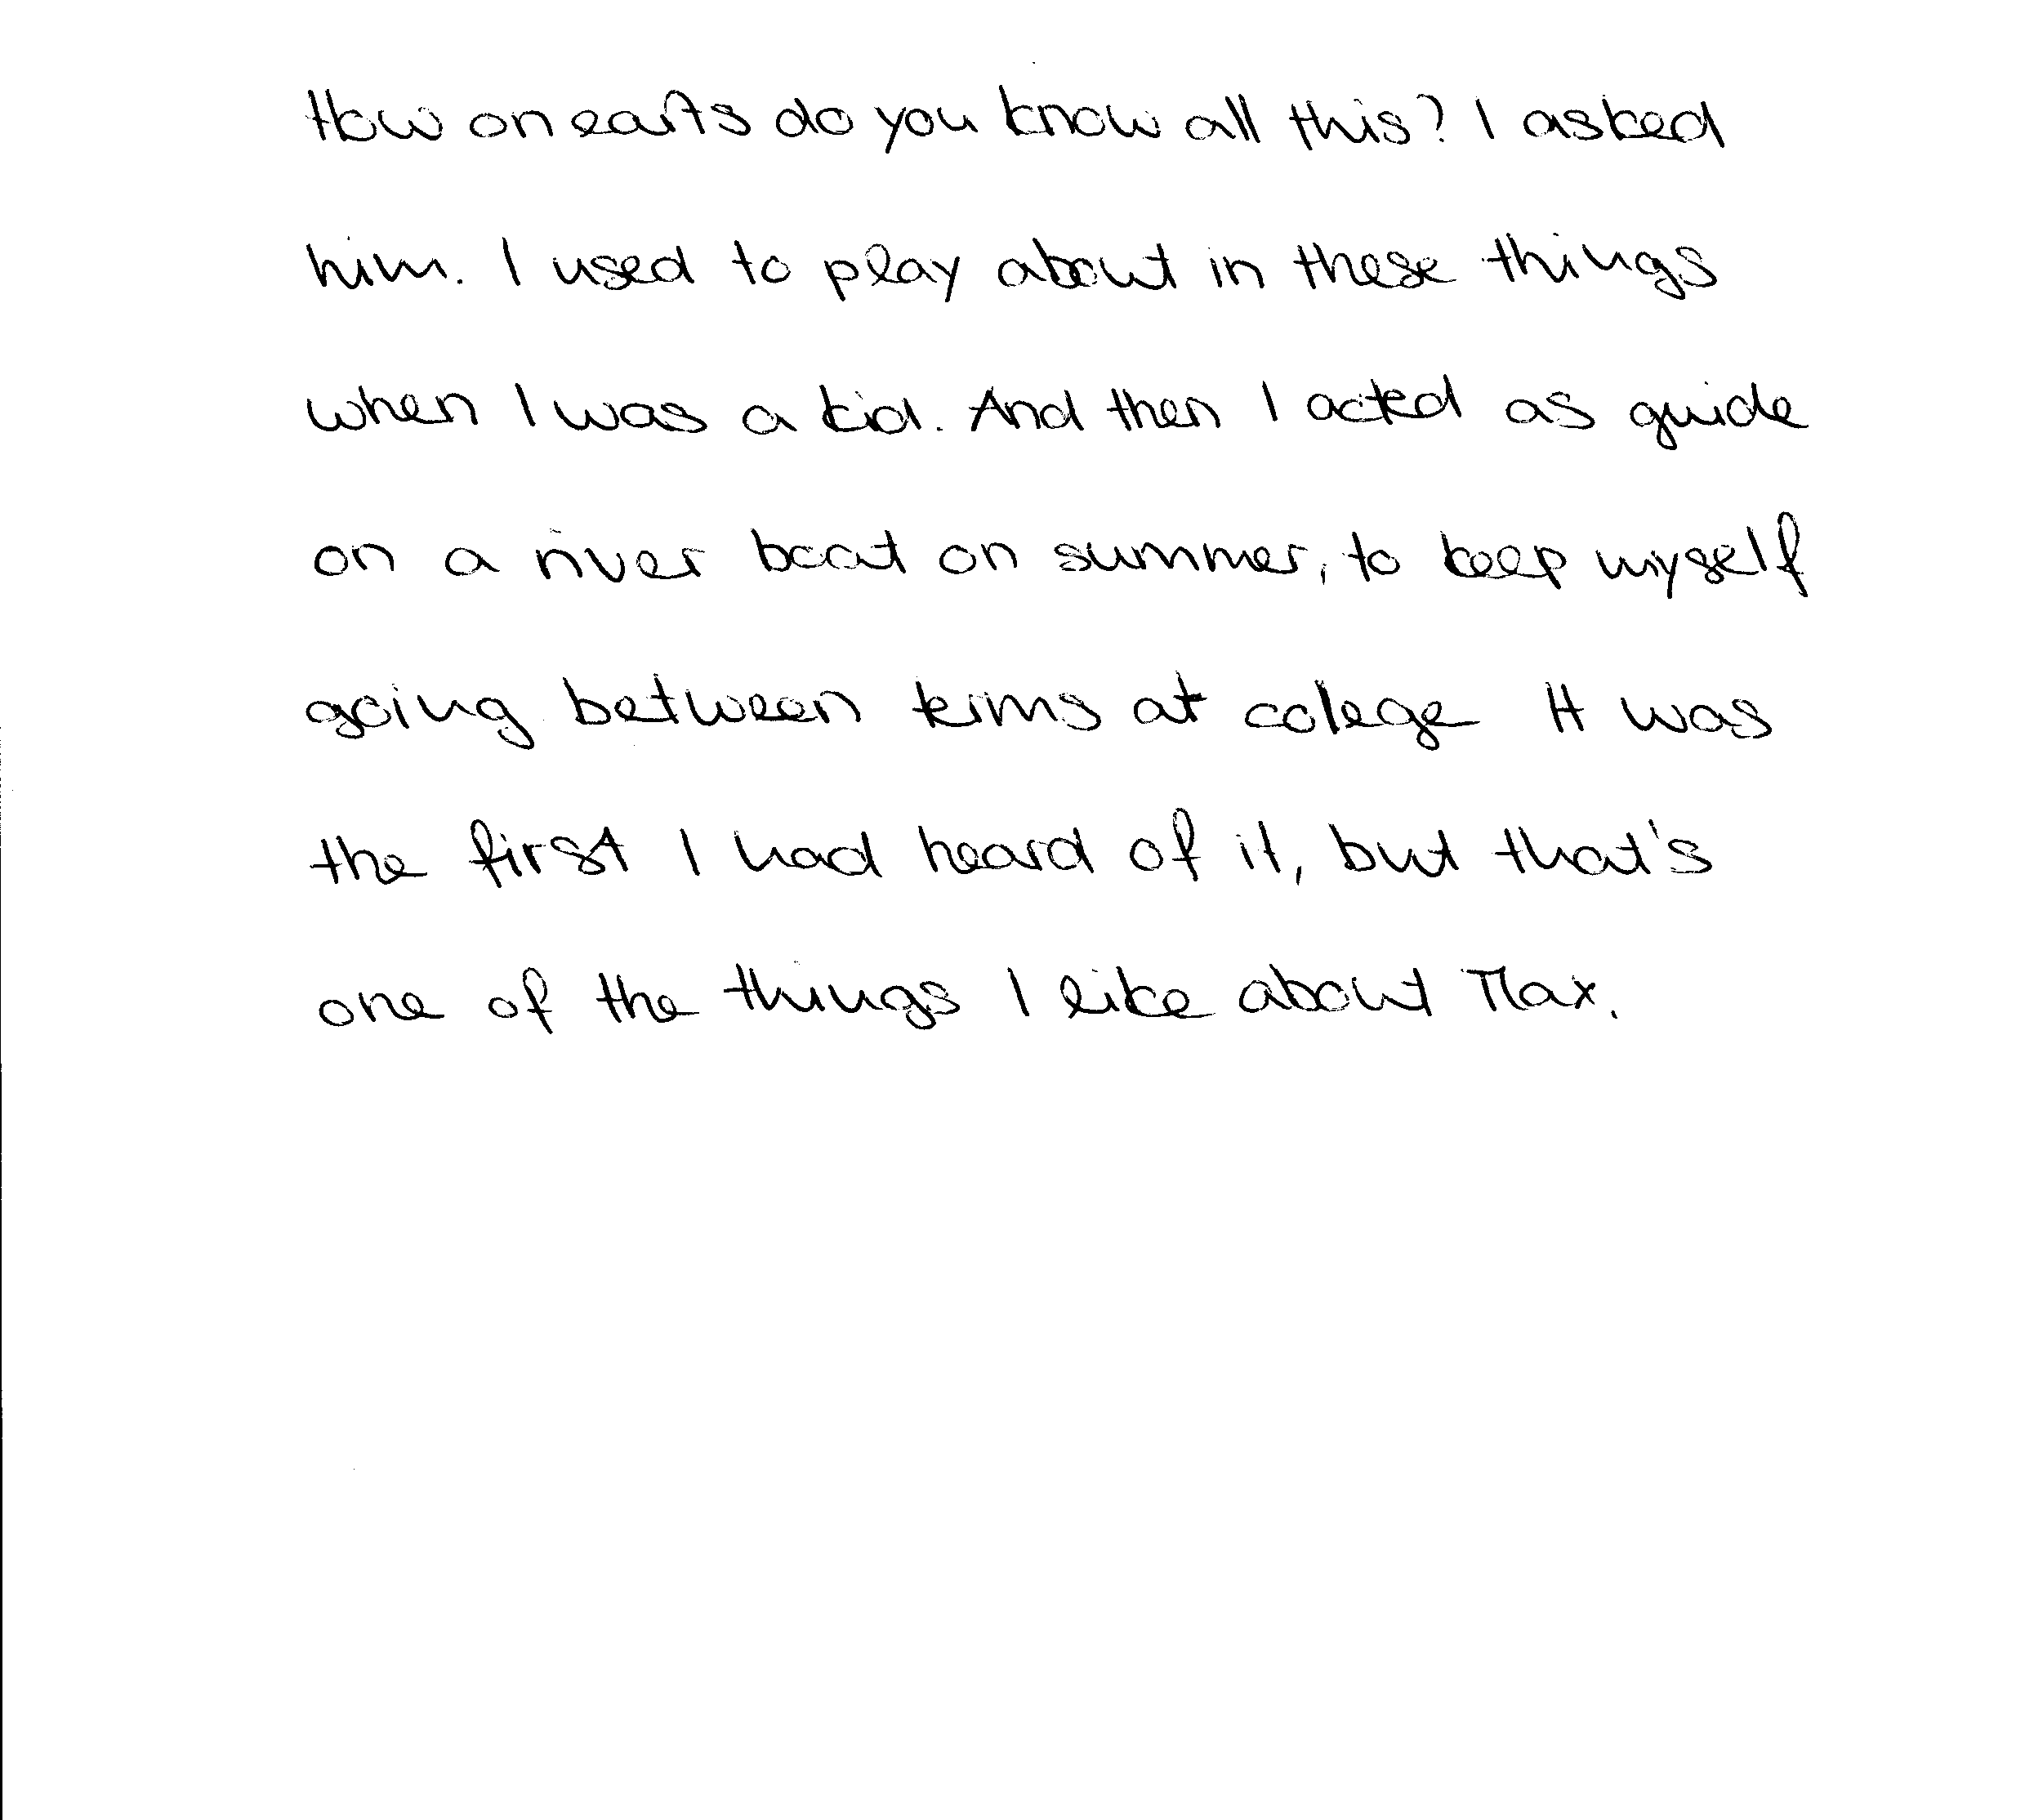 How on earts do you know all this? I asked
him. I used to play about in these things
when I was a kid. And then I acted as guide
on a river boat on summer, to keep myself
going between terms at colege It was
the first I had heard of it, but that's
one of the things I like about Max.